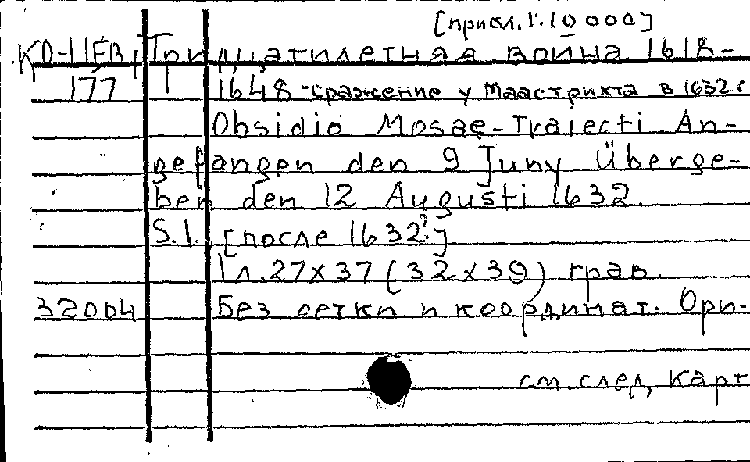 [прибл. 1:10 000]
КО-11ЕВ, Тридцатилетняя война 1618-
177 1648 - сражение у Маастрихта в 1632 г
Obsidio Mosae-Traiecti An-
gefangen den 9 Juny Überge-
ben den 12 Augusti 1632.
S.l. [после 1632?].
1 л. 27x37 (32x39) грав.
32004 Без сетки и координат. Ори-
см. след. карт